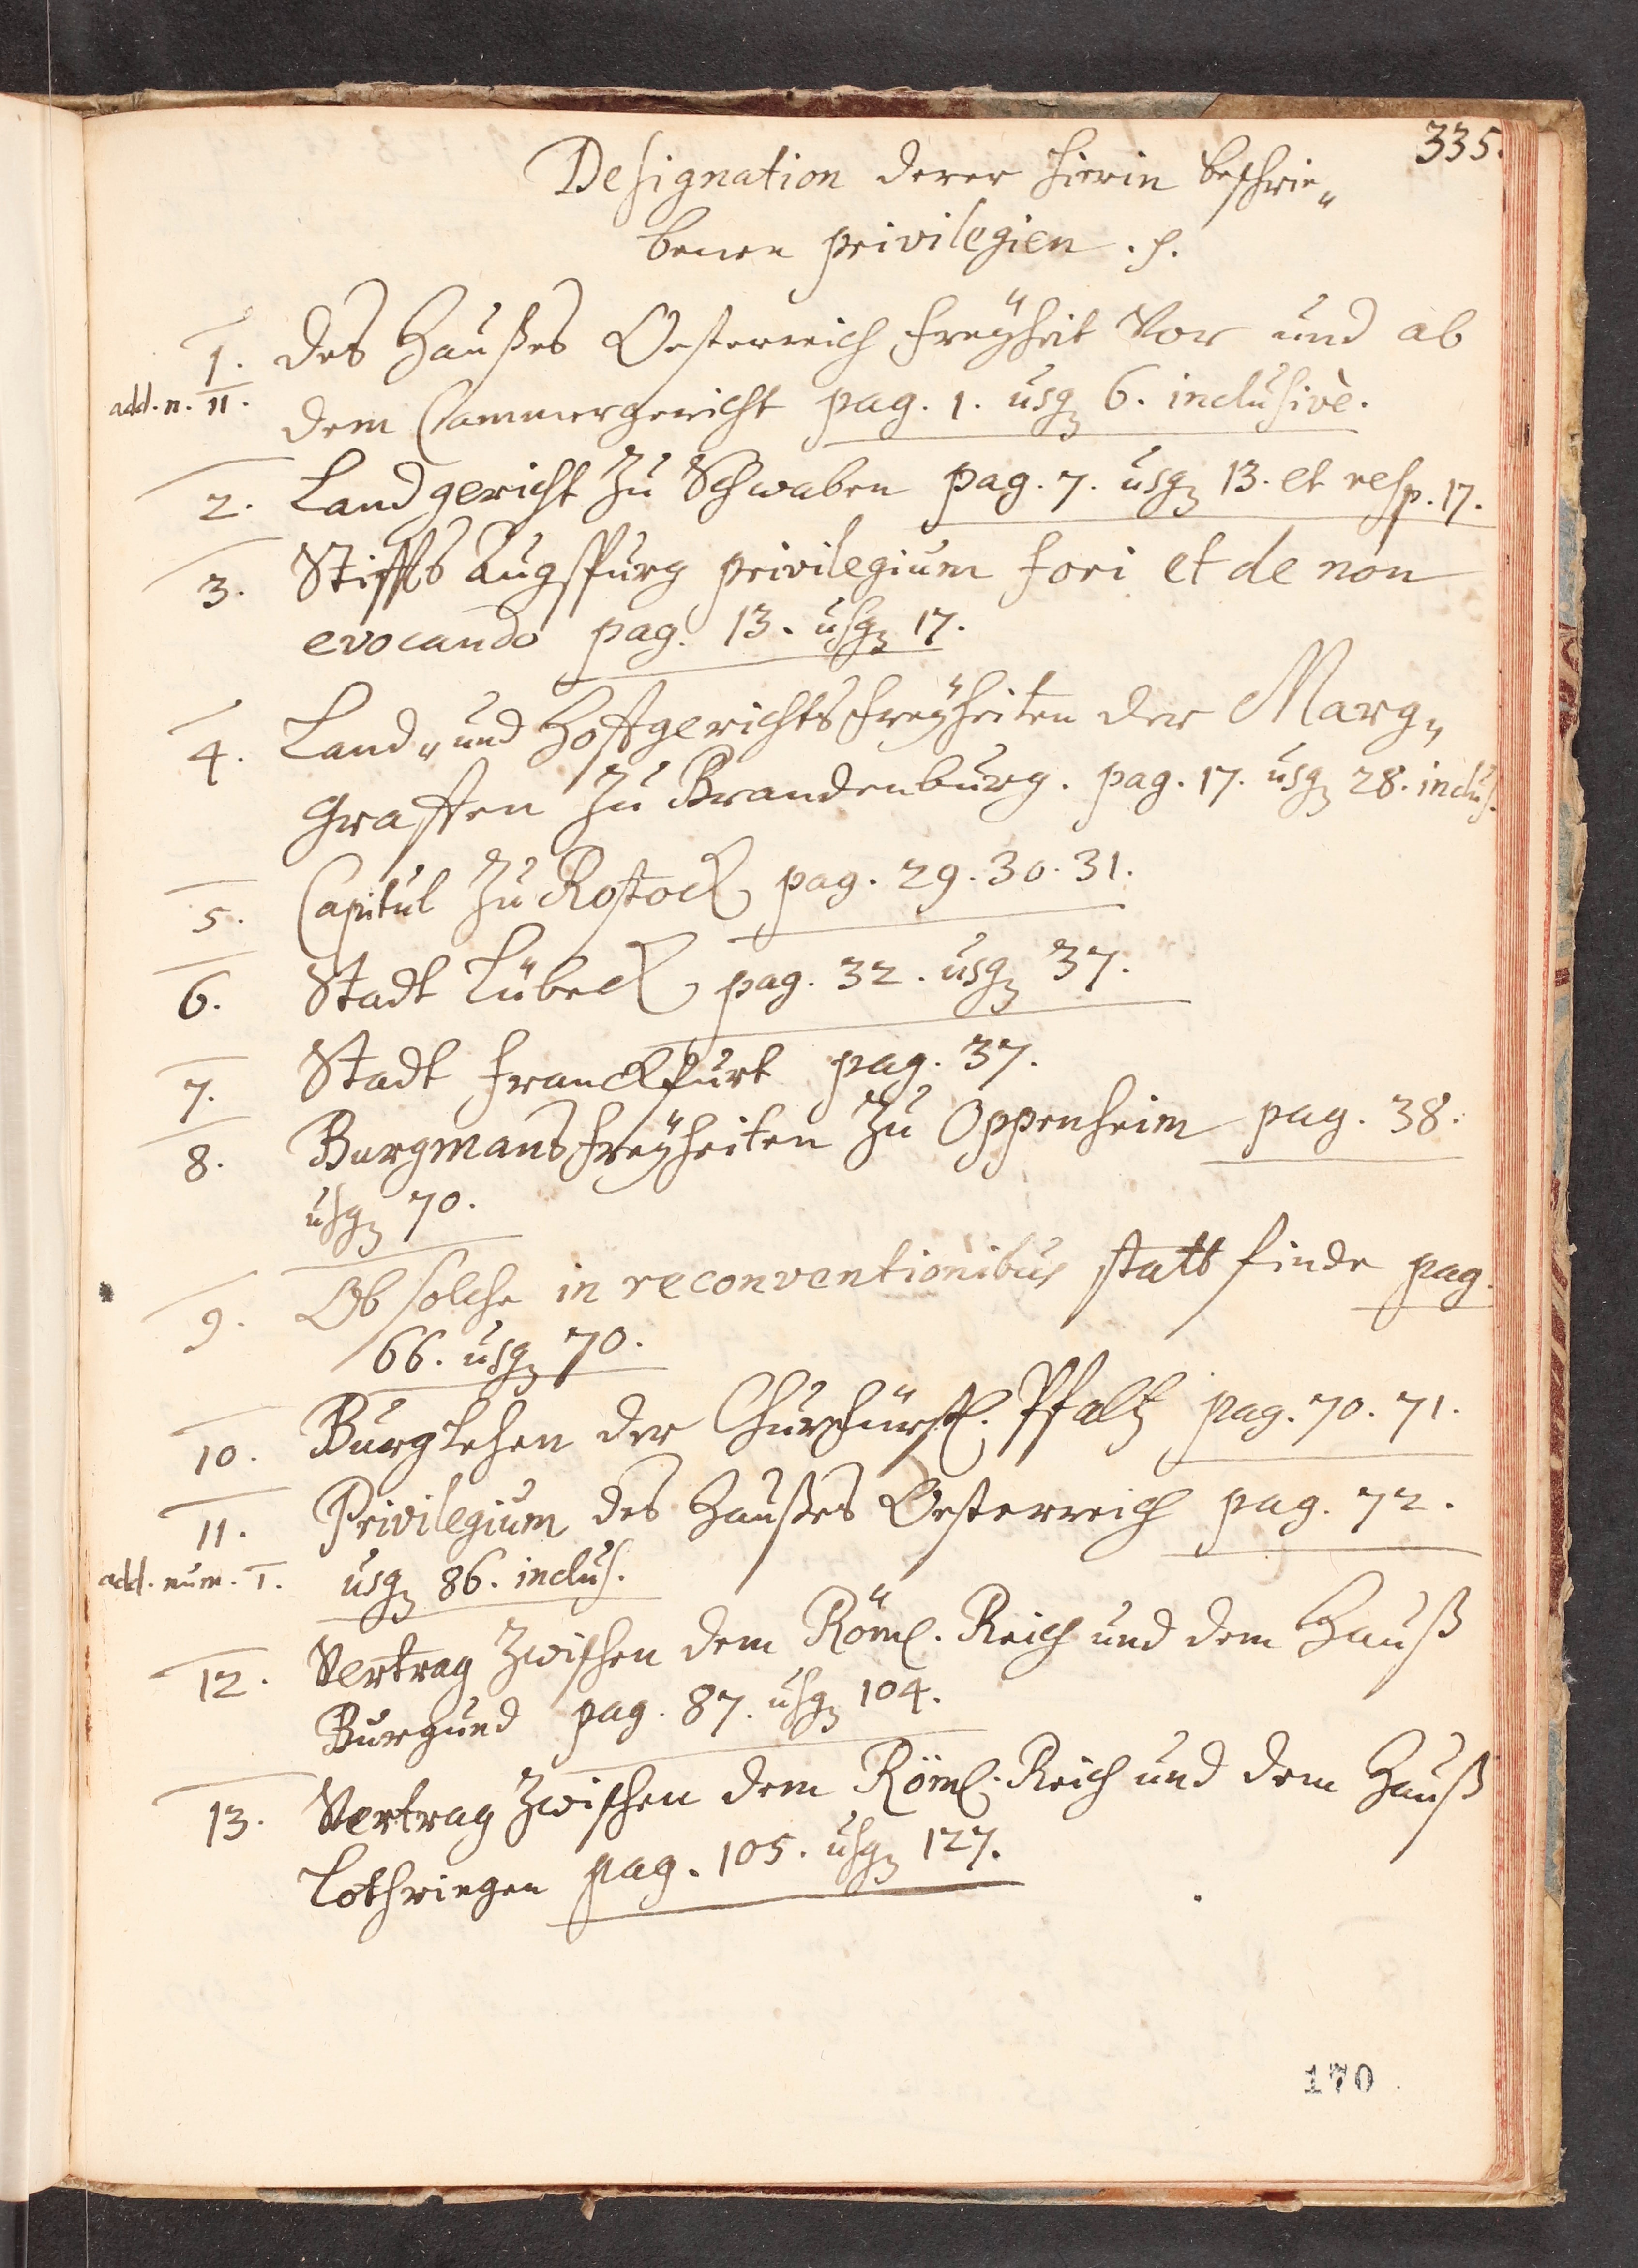 335.
Designation derer hierin beschrie„
benen privilegien .
1. des Haußes Oesterreich freÿheit Vor und ab
add. n. 11. dem Cammergericht pag. 1. usq 6. inclusivè.
2. Landgericht zu Schwaben pag. 7. usq 13. et resp. 17.
3. Stiffts Augspurg privilegium fori et de non
evocando pag. 13. usq 17.
4. Land„ und Hoffgerichtsfreÿheiten der Marg„
Graffen zu Brandenburg. pag. 17. usq 28. inclus.
5. Capitul zu Rostock pag. 29. 30. 31.
6. Stadt Lübeck pag. 32. usq 37.
7. Stadt Franckfurt pag. 37.
8. Burgmansfreÿheiten zu Oppenheim pag. 38.
usq 70.
9. Ob solche in reconventionibus statt finde pag.
66. usq 70.
10. Burglehen der Churfürstl. Pfaltz pag. 70. 71.
11. Privilegium des Haußes Oesterreich pag. 72.
add. num. 1. usq 86. inclus.
12. Vertrag zwischen dem Röml. Reich und dem Hauß
Burgund pag. 87. usq 104.
13. Vertrag zwischen dem Röml. Reich und dem Hauß
Lothringen pag. 105. usq 127.
170